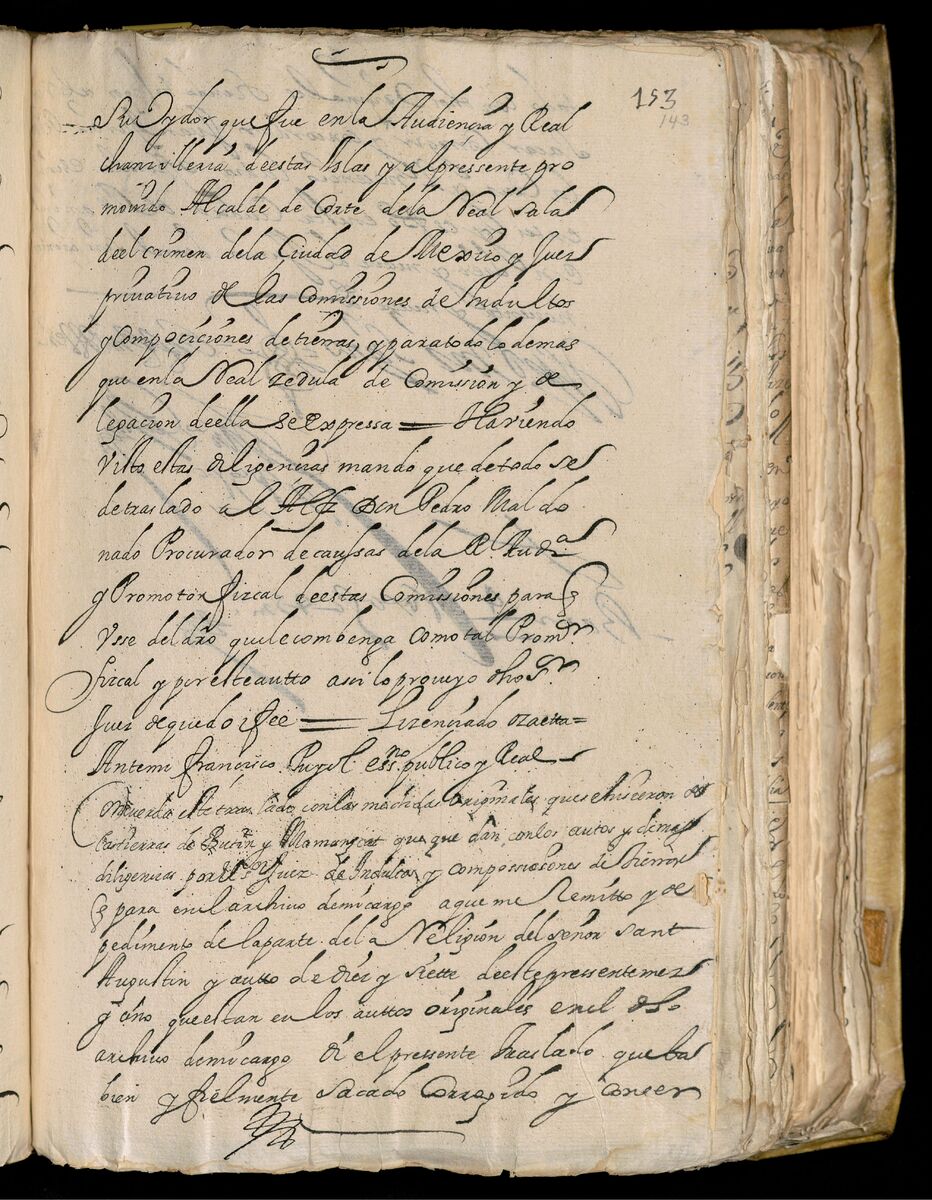 153
143
Su Oydor que fue en la Audiencia y Real
chanzilleria deestas Islas y alpressente pro
movido Alcalde de Corte dela Real sala
deel crimen dela Çiudad de Mexico y Juez
privativo de las Comissiones de Indultos
y Compociciones detierras, y paratodo lo demas
que enla Real zedula de Comission y de
legacion deella se expressa = Haviendo
visto estas diligencias mando que detodo se
detraslado al Alfz Don Pedro Maldo
nado Procurador decaussas dela Rl Auda
y Promotor fizcal deestas Comissiones para q
Vsse del dro quele combenga como tal Promor
fizcal y por este autto assi lo proveyo dho Sr
Juez dequedoifee = Lizenciado ozaetta =
Antemi francisco Puyol essno publico y Real
Concuerda este traslado con las medidas originales que se hisceron de
las tierras de y que quedan con los autos y demas
diligencias por el sor Juez de Indultos y composisiones de tierras
q para en el archivo demi cargo aque me Remitto y de
pedimento de laparte dela Religion del señor sant
Augustin y autto de diez y siette deeste pressente mez
y año que estan en los auttos originales en el dho
archivo demi cargo di el pressente traslado que ba
bien y fielmente sacado Corregido y Concer